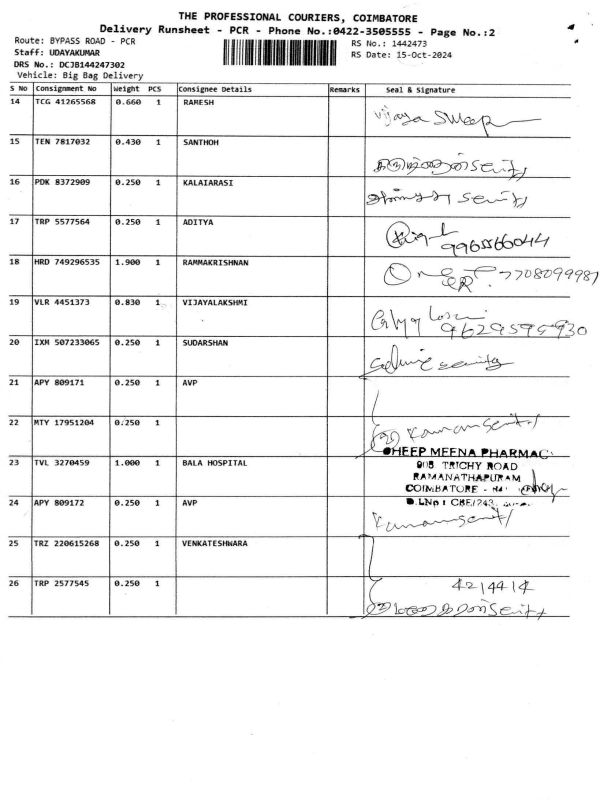 THE PROFESSIONAL COURIERS, COIMBATORE
Delivery Runsheet - PCR - Phone No.:0422-3505555 - Page No.:2
Route: BYPASS ROAD - PCR
RS No.: 1442473
Staff: UDAYAKUMAR
RS Date: 15-Oct-2024
DRS No.: DCJB144247302
Vehicle: Big Bag Delivery
S No Consignment No Weight PCS Consignee Details Remarks Seal & Signature
14 TCG 41265568 0.660 1 RAMESH
Vijaya
15 TEN 7817032 0.430 1 SANTHOH
16 PDK 8372909 0.250 1 KALAIARASI
17 TRP 5577564 0.250 1 ADITYA
9965566044
18 HRD 749296535 1.900 1 RAMMAKRISHNAN
7708099987
19 VLR 4451373 0.830 1 VIJAYALAKSHMI
20 IXM 507233065 0.250 1 SUDARSHAN
21 APY 809171 0.250 1 AVP
22 MTY 17951204 0.250 1
MEENA PHARMAC
23 TVL 3270459 1.000 1 BALA HOSPITAL
TRICHY ROAD
RAMANATHAPURAM
COIMBATORE
24 APY 809172 0.250 1 AVP
25 TRZ 220615268 0.250 1 VENKATESHWARA
26 TRP 2577545 0.250 1
4214414